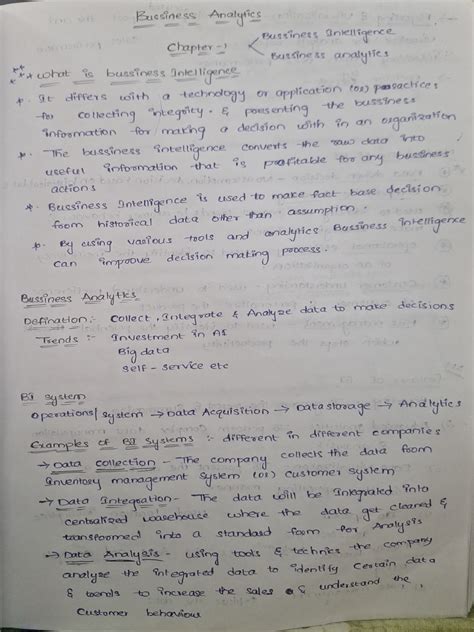 Bussiness Analytics
Chapter-1 < Bussiness Intelligence
Bussiness analytics
** what is bussiness Intelligence
* It differs with a technology or application (or) practices
for collecting integrity & presenting the bussiness
information for making a decision with in an organization
* The bussiness intelligence converts the raw data into
useful information that is profitable for any bussiness
actions
* Bussiness Intelligence is used to make fact base decision
from historical data other than assumption.
* By using various tools and analytics Bussiness Intelligence
can improve decision making process.
Bussiness Analytics
Defination:- Collect, Integrate & Analyze data to make decisions
Trends :- Investment in AI
Big data
Self-service etc
BI System
Operations/system → Data Acquisition → Data storage → Analytics
Examples of BI Systems :- different in different companies
→ Data collection - The company collects the data from
Inventory management System (or) Customer system
→ Data Integration - The data will be Integrated into
centralized warehouse where the data get cleaned &
transformed into a standard form for Analysis
→ Data Analysis - using tools & technics the company
analyse the integrated data to identify Certain data
& trends to increase the sales & understand the
Customer behaviour